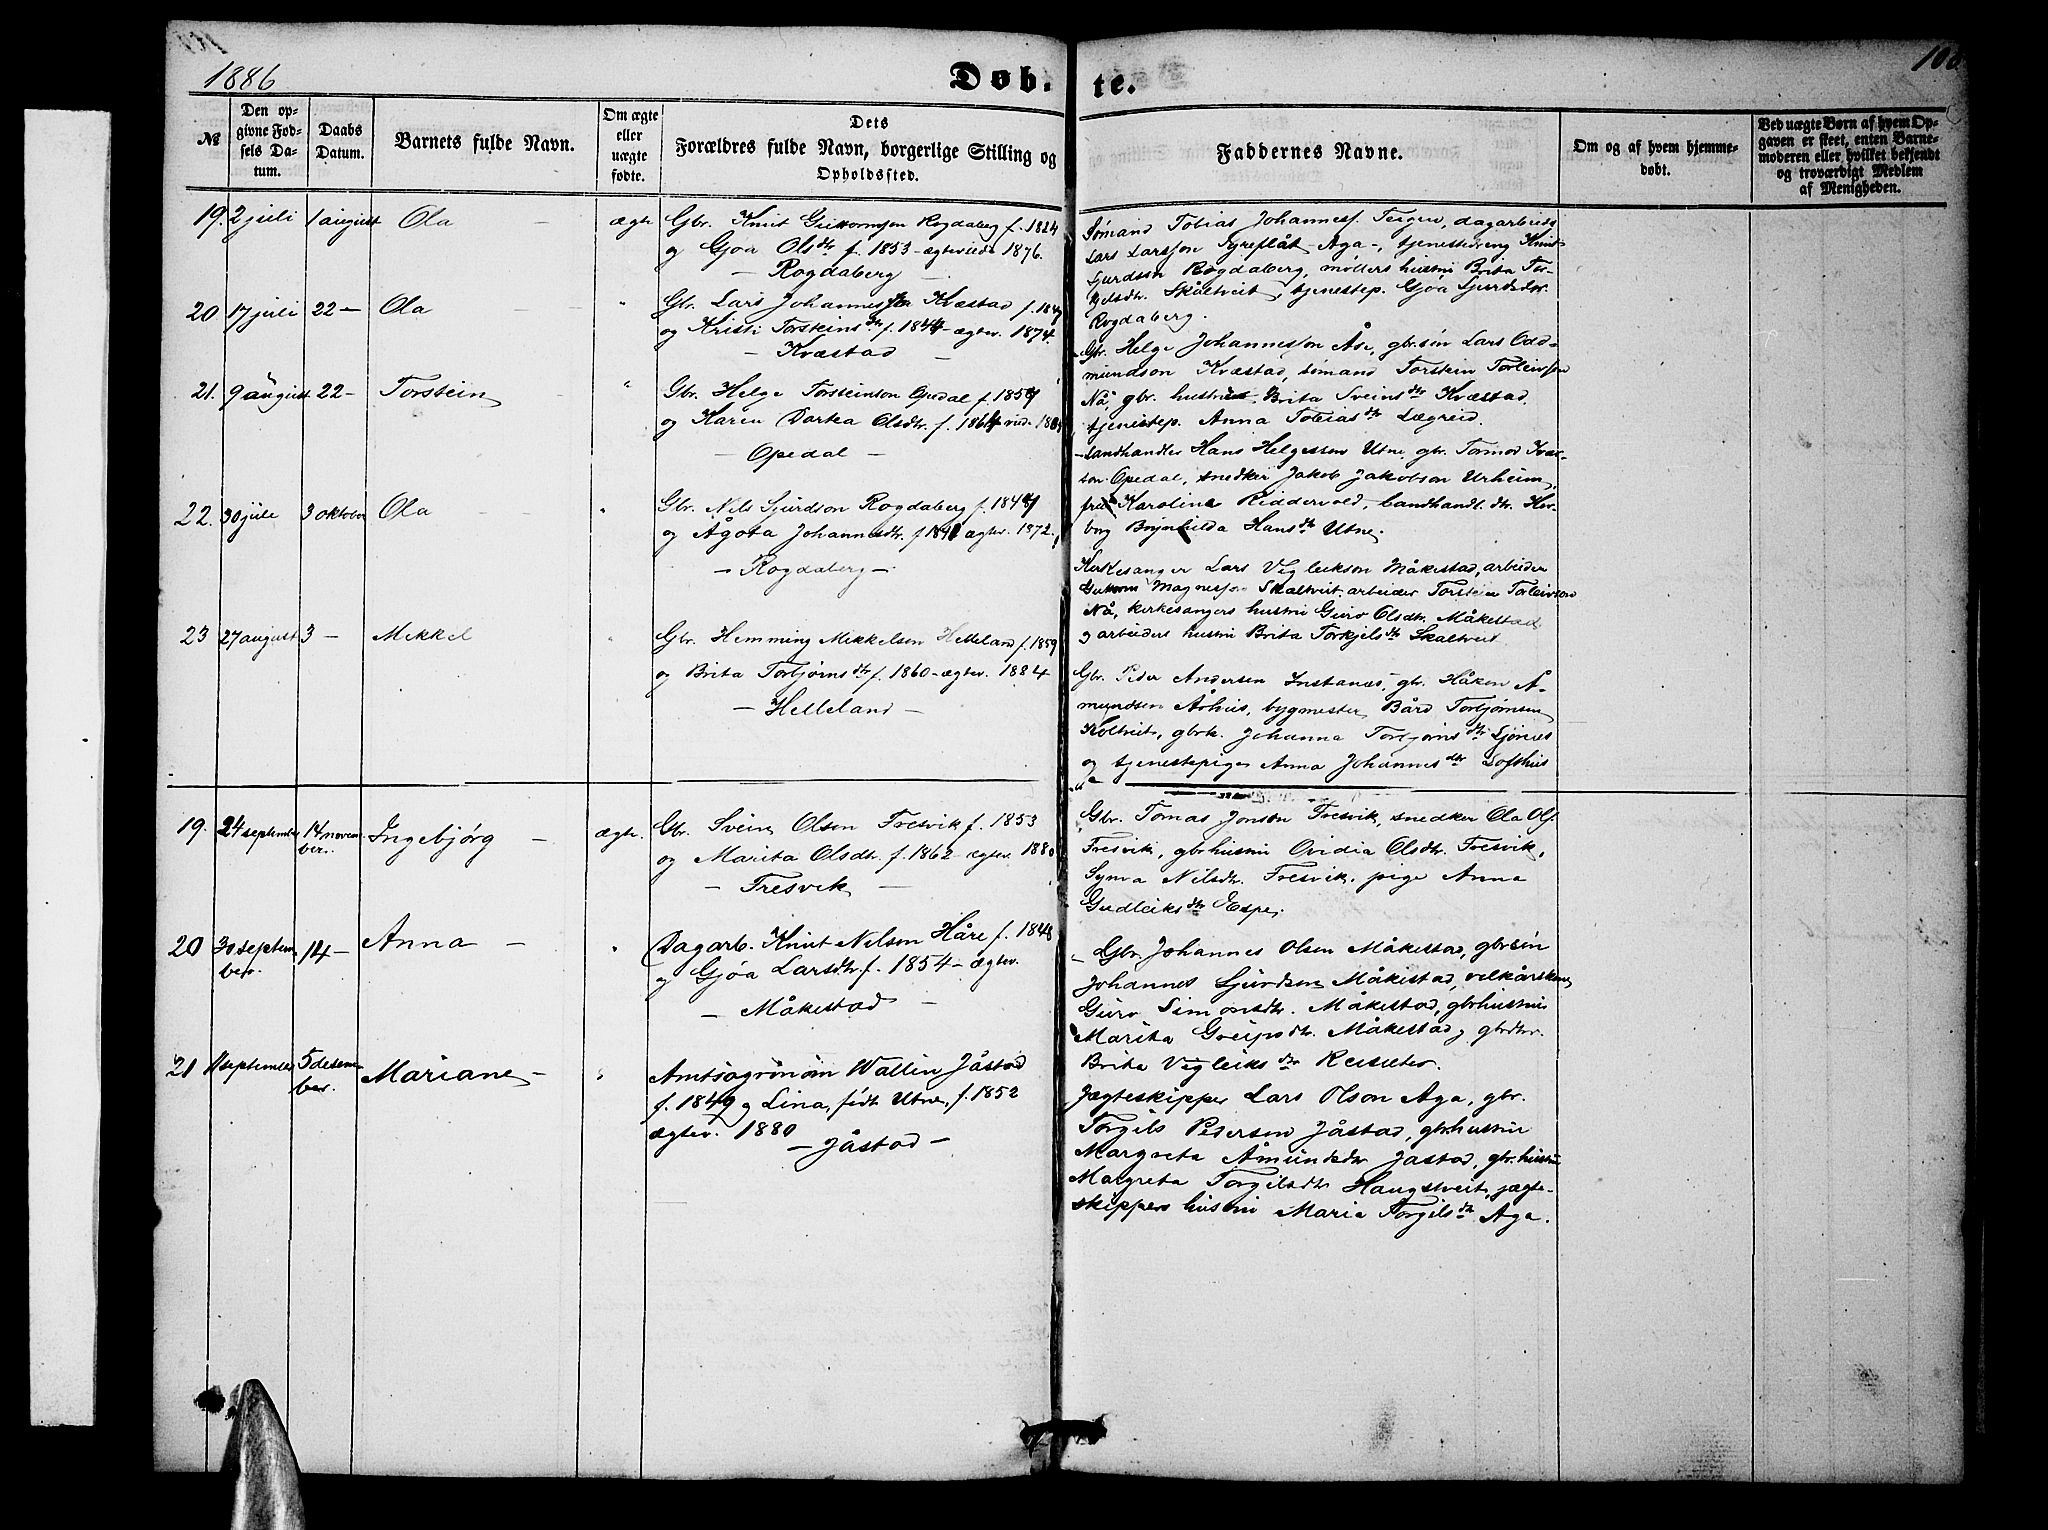 1886
Døb- te.
108
№
Den op-
givne Fød-
sels Da-
tum.
Daabs
Datum.
Barnets fulde Navn.
Om ægte
eller
uægte
fødte.
Dets
Forældres fulde Navn, borgerlige Stilling og
Opholdssted.
Faddernes Navne.
Om og af hvem hjemme-
døbt.
Ved uægte Børn af hvem Op-
gaven er skeet, enten Barne-
moderen eller hvilket bekjendt
og troværdigt Medlem
af Menigheden.
19. 2 juli 1 august Ola ægte
Gbr. Knut Guttormson Rogdaberg f. 1824
og Gjøa Olsdtr f. 1853 - ægteviede 1876.
- Rogdaberg -
Sømand Tobias Johanness. Teigen, dagarbeid.
Lars Larsson Syreflåt - Aga -, tjenestedreng Knut
Sjurdsson Rogdaberg, møllers hustru Brita Tor-
kjelsdtr. Skåltveit, tjenestep. Gjøa Sjurdsdtr.
Rogdaberg.
20 17 juli 22 - Ola "
Gbr. Lars Johannesson Kvæstad f. 1849
og Kristi Torsteinsdtr f. 1844 - ægtev. 1874.
- Kvæstad -
- Gbr. Helge Johannesson Åse, gbr.søn Lars Odd-
mundson Kvæstad, sømand Torstein Torleivson
Nå, gbr. hustru Brita Sveinsdtr Kvæstad.
tjenestep. Anna Tobiasdtr Lægreid.
21. 9 august 22 - Torstein "
Gbr. Helge Torsteinson Opedal f. 1859
og Karen Dortea Olsdtr. f. 1864 - vied.
- Opedal -
- Landhandler Hans Helgesson Utne, gbr. Tormod Ivar-
son Opedal, snedker Jakob Jakobson Urheim,
Karoline Riddervold, landhandl. dtr. Her-
borg Brynhilda Hansdtr Utne.
22. 30 juli 3 oktober Ola "
Gbr. Nils Sjurdson Rogdaberg f. 1849
og Ågota Johannesdtr. f. 1841 ægtev. 1872.
- Rogdaberg -
Kirkesanger Lars Vigleikson Måkestad, arbeider
Guttorm Magnesson Skåltveit, arbeider Torstein Torleivson
Nå, kirkesangers hustru Guro Olsdtr. Måkestad
og arbeiders hustru Brita Torkjelsdtr Skåltveit
23 27 august 3 - Mekkel "
Gbr. Hemming Mekkelson Helleland f. 1859
og Brita Torbjørnsdtr f. 1860 - ægtev. 1884
- Helleland -
Gbr. Peder Andersen Instanes, gbr. Håkon Å-
mundsen Århus, bygmester Bård Torbjørnsen
Holtveit, gbrk. Johanna Torbjørnsdtr Sjonæs
og tjenestepige Anna Johannesdtr Lofthus
19. 24 september 14 novem-
ber. Ingebjørg - ægte.
Gbr. Svein Olson Tresvik f. 1853
og Marita Olsdtr. f. 1862 - ægtev. 1880
- Tresvik -
Gbr. Tomas Jonson Tresvik, snedker Ola Ols.
Tresvik, gbrhustru Ovidia Olsdtr. Tresvik,
Synva Nilsdtr. Tresvik. pige Anna
Gudleiksdtr Espe.
20 30 septem-
ber. 14 - Anna - "
Dagarb. Knut Nelson Håre f. 1848
og Gjøa Larsdtr f. 1854 - ægtev.
- Måkestad -
- Gbr. Johannes Olson Måkestad, gbrsøn
Johannes Sjurdsen Måkestad, velkårskone
Guro Simonsdtr. Måkestad, gbrhustru
Marita Greipsdtr. Måkestad, gbrdtr.
Brita Vigleiksdtr Reisæter.
21 11 september 5 desem-
ber. Mariane - "
Amtsagronom Wallin Jåstad
f. 1849 og Lina, født Utne, f. 1852
ægtev. 1880
- Jåstad -
Jægteskipper Lars Olson Aga, gbr.
Torgils Pederson Jåstad, gbrhustru
Margreta Åmundsdtr Jåstad, gbr.hustru
Margreta Torgilsdtr Haugstveit, jægte-
skippers hustru Maria Torgilsdtr Aga.